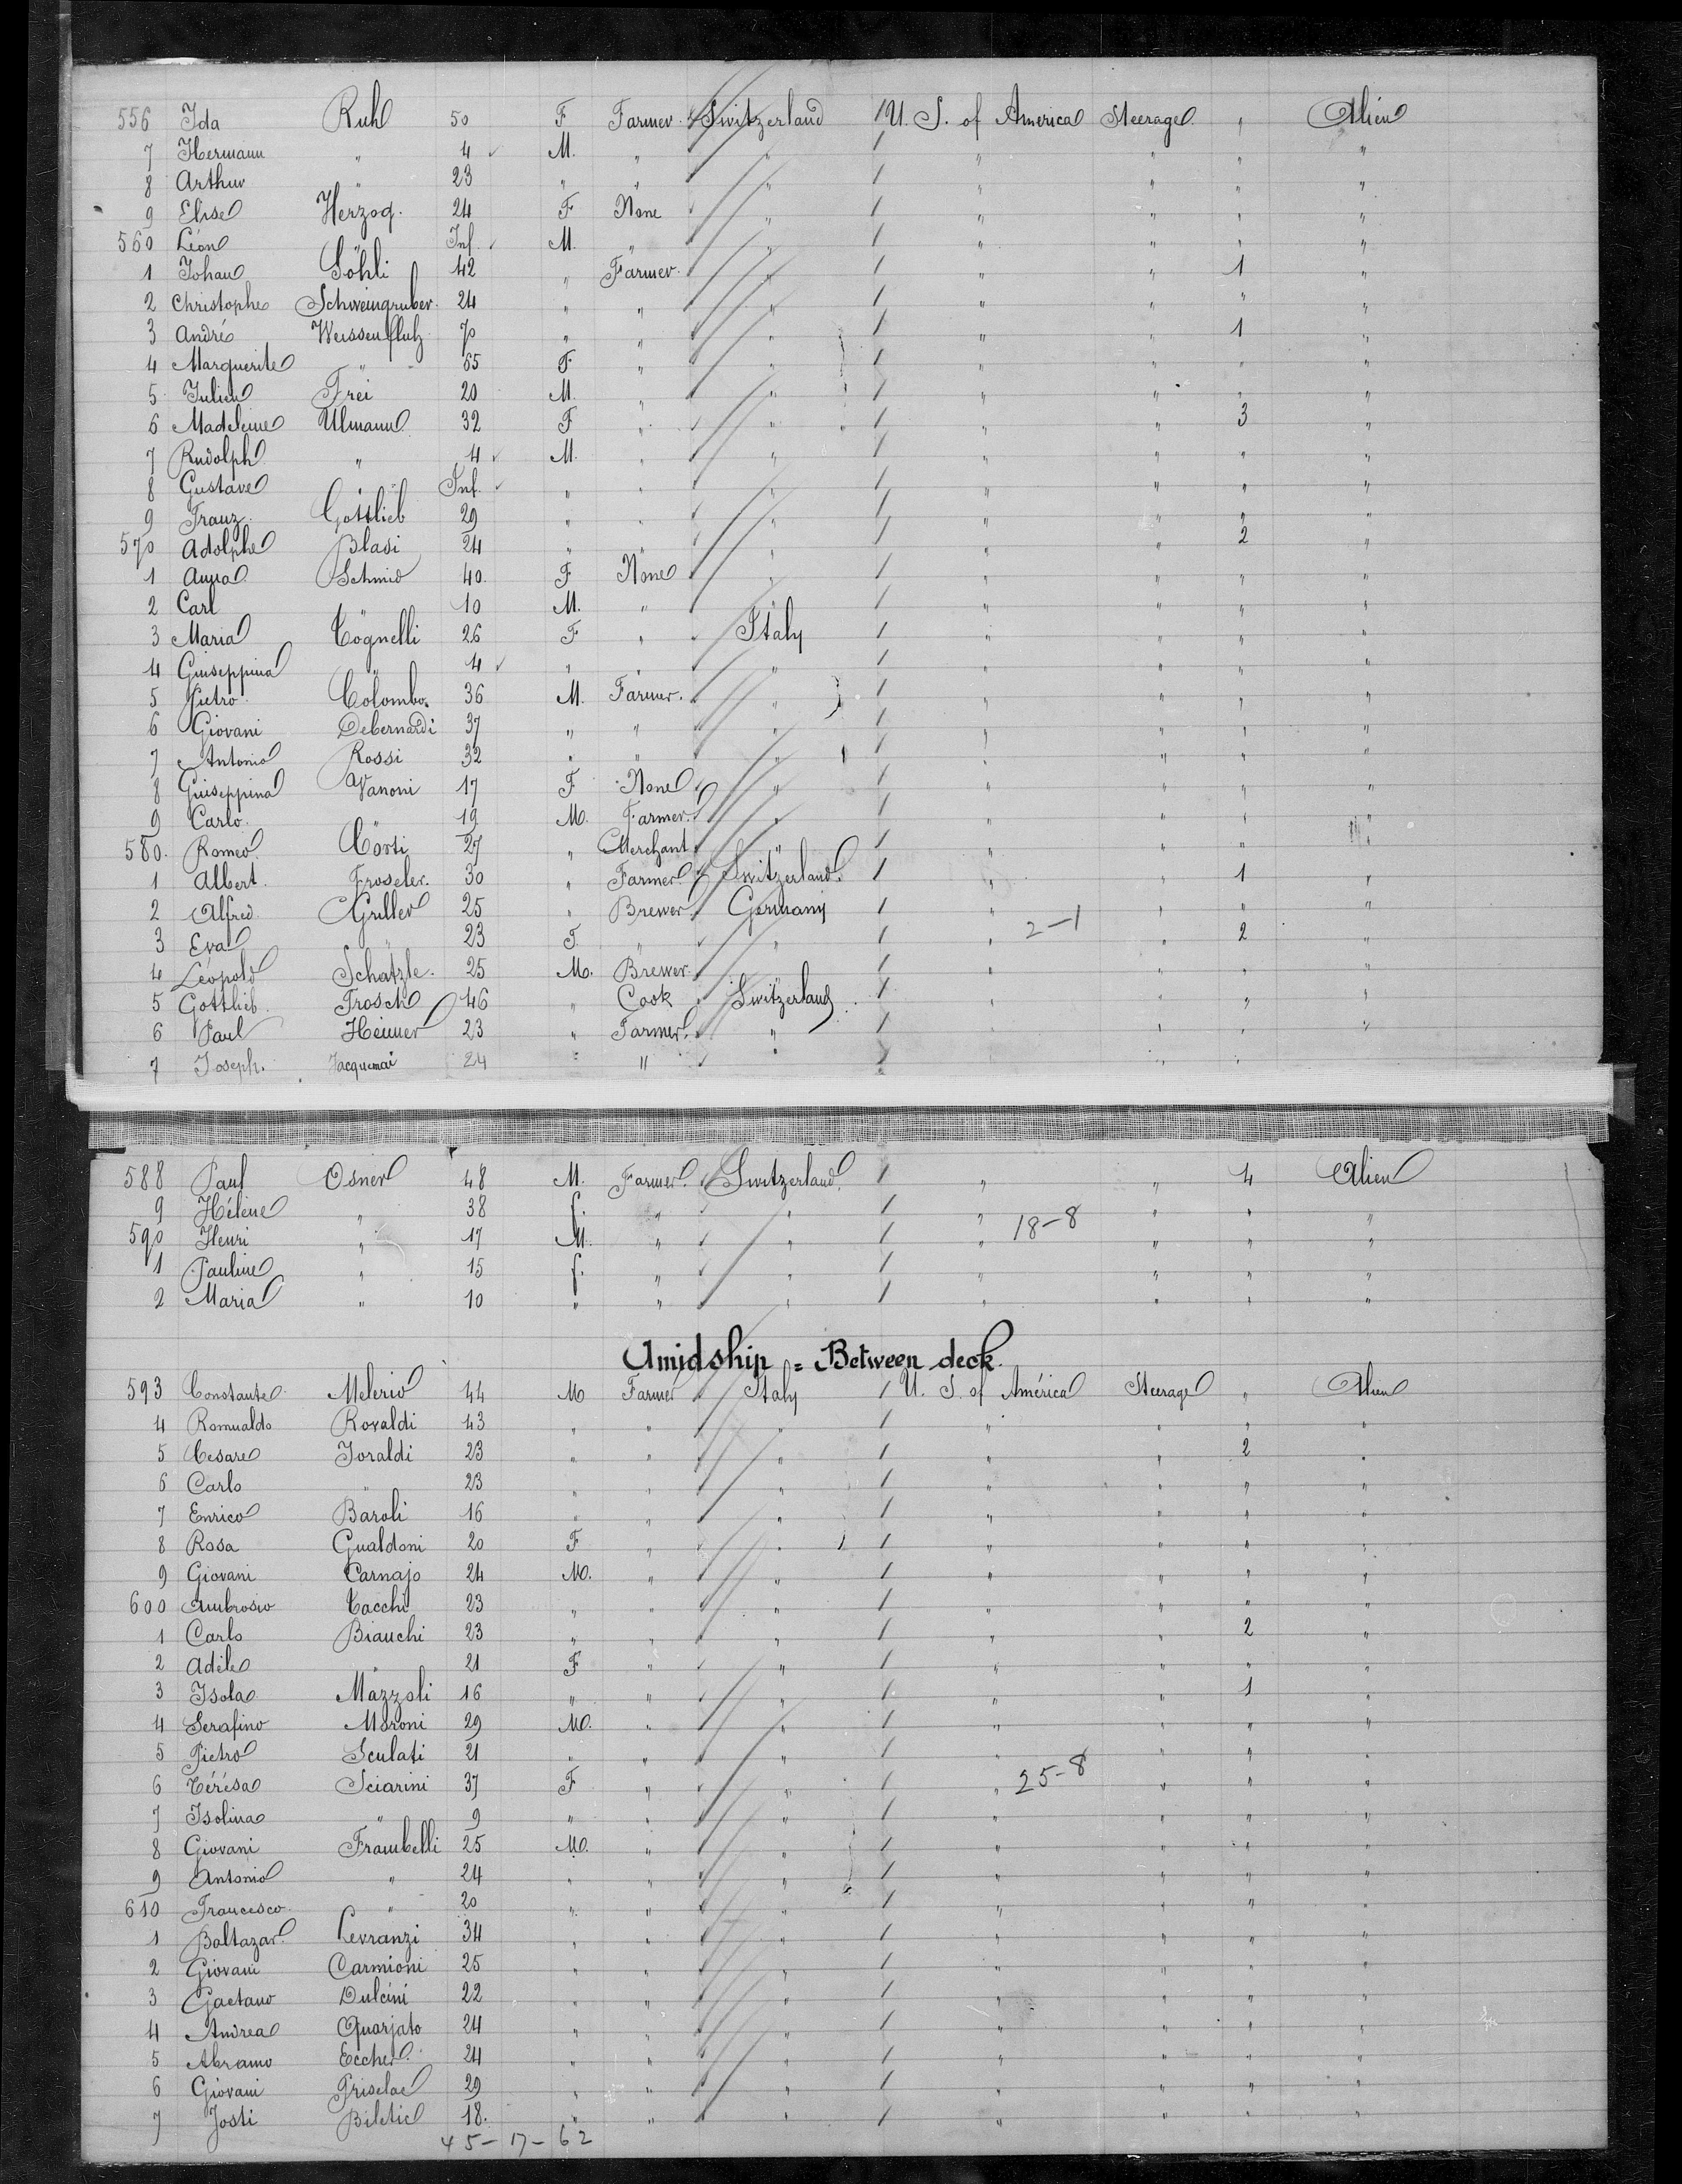 556 Ida Ruhl 50 F Farmer Switzerland / U. S. of America Steerage " Alien
7 Hermann " 4 M. " " / " " " "
8 Arthur " 23 " " " / " " " "
9 Elise Herzog. 24 F None " / " " " "
560 Léon " Inf. M. " " / " " " "
1 Johan Söhli 42 " Farmer " / " " 1 "
2 Christophe Schweingruber 24 " " " / " " " "
3 André Weissenfluh 70 " " " / " " 1 "
4 Marguerite " 65 F " " / " " " "
5 Julien Frei 20 M. " " / " " " "
6 Madeleine Ulmann 32 F " " / " " 3 "
7 Rudolph " 4 M. " " / " " " "
8 Gustave " Inf. " " " / " " " "
9 Franz Gottlieb 29 " " " / " " " "
570 Adolphe Blasi 24 " " " / " " 2 "
1 Anna Schmid 40 F None " / " " " "
2 Carl " 10 M. " " / " " " "
3 Maria Cognelli 26 F " Italy / " " " "
4 Guiseppina " 4 " " " / " " " "
5 Pietro Colombo. 36 M. Farmer. " / " " " "
6 Giovani Debernardi 37 " " " / " " " "
7 Antonio Rossi 32 " " " / " " " "
8 Guiseppina Vanoni 17 F None " / " " " "
9 Carlo " 19 M. Farmer. " / " " " "
580. Romeo Corti 27 " Merchant " / " " " "
1 Albert Froseler. 30 " Farmer Switzerland / " " 1 "
2 Alfred Griller 25 " Brewer Germany / " " " "
3 Eva " 23 F. " " / " 2-1 " 2 "
4 Léopold Schatzle. 25 M. Brewer " / " " " "
5 Gottlieb Frosch 46 " Cook Switzerland / " " " "
6 Paul Heimer 23 " Farmer. " / " " " "
7 Joseph. Jacquemai 24 " " " / " " "
588 Paul Osner 48 M. Farmer. Switzerland / " " 4 Alien
9 Hélène " 38 f. " " / " " " "
590 Henri " 17 M. " " / " 18-8 " " "
1 Pauline " 15 f. " " / " " " "
2 Maria " 10 " " " / " " " "
Amidship = Between deck.
593 Constante Melerio 44 M Farmer Italy / U. S. of América Steerage " Alien
4 Romualdo Rovaldi 43 " " " / " " " "
5 Cesare Joraldi 23 " " " / " " 2 "
6 Carlo " 23 " " " / " " " "
7 Enrico Baroli 16 " " " / " " " "
8 Rosa Gualdoni 20 F " " / " " " "
9 Giovani Carnajo 24 M. " " / " " " "
600 Ambrosio Cacchi 23 " " " / " " " "
1 Carlo Bianchi 23 " " " / " " 2 "
2 Adèle " 21 F " " / " " " "
3 Isola Mazzoli 16 " " " / " " 1 "
4 Serafino Moroni 29 M. " " / " " " "
5 Pietro Sculati 21 " " " / " " " "
6 Térésa Sciarini 37 F " " / " 25-8 " " "
7 Isolina " 9 " " " / " " " "
8 Giovani Frambelli 25 M. " " / " " " "
9 Antonio " 24 " " " / " " " "
610 Francesco " 20 " " " / " " " "
1 Baltazar Levranzi 34 " " " / " " " "
2 Giovani Carmioni 25 " " " / " " " "
3 Gaetano Dulcini 22 " " " / " " " "
4 Andrea Quarjato 24 " " " / " " " "
5 Abramo Eccher 24 " " " / " " " "
6 Giovani Griselae 29 " " " / " " " "
7 Josti Biletic 18. " " " / " " " "
45-17-62